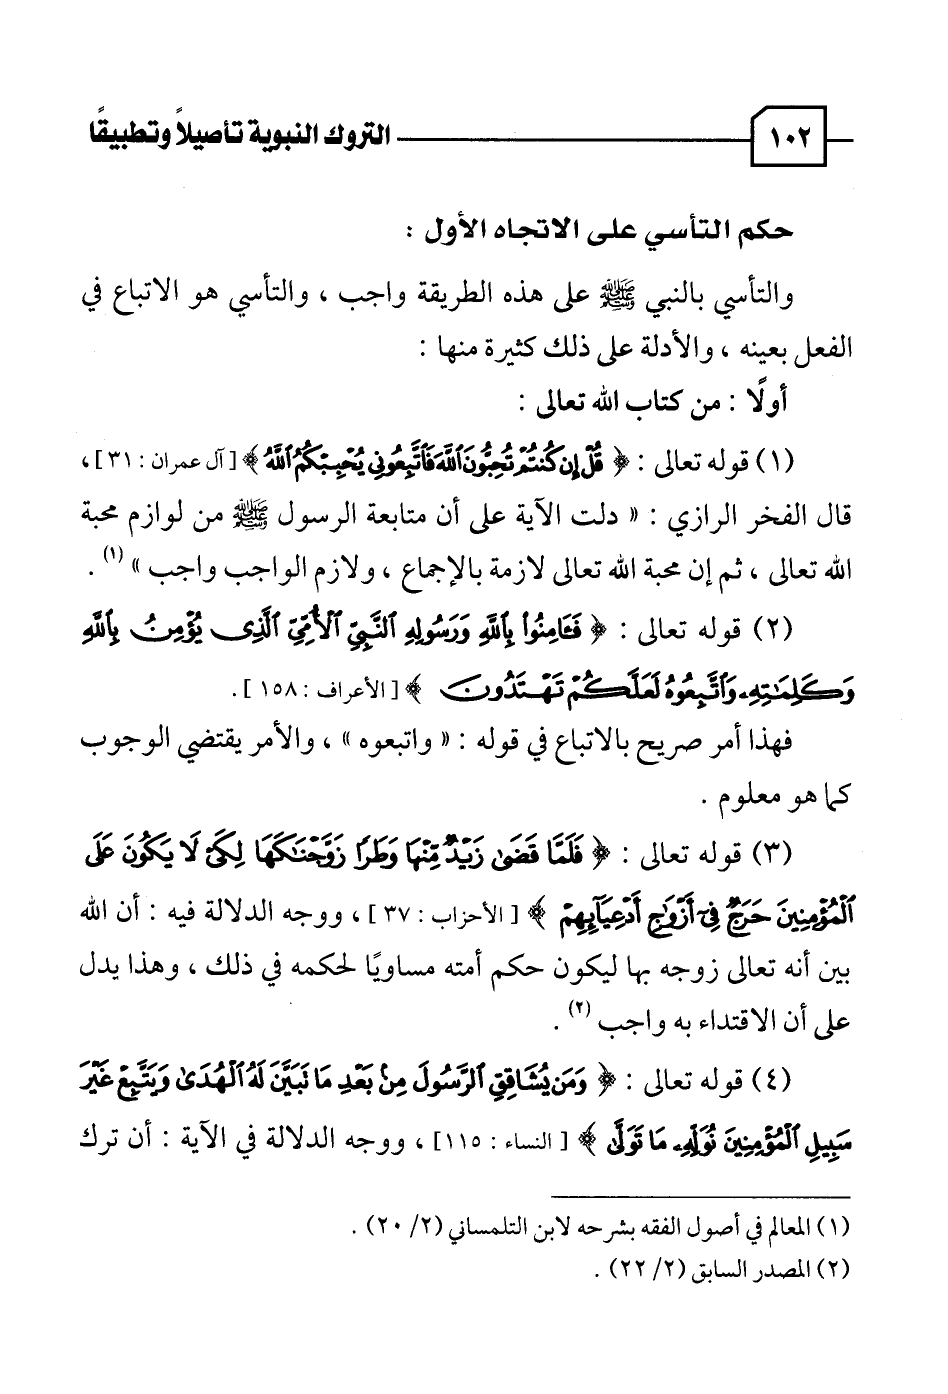 ١٠٢ التروك النبوية تأصيلاً وتطبيقًا
حكم التأسي على الاتجاه الأول :
والتأسي بالنبي ﷺ على هذه الطريقة واجب ، والتأسي هو الاتباع في
الفعل بعينه ، والأدلة على ذلك كثيرة منها :
أولًا : من كتاب الله تعالى :
(١) قوله تعالى : ﴿ قُلْ إِن كُنتُمْ تُحِبُّونَ ٱللَّهَ فَٱتَّبِعُونِى يُحْبِبْكُمُ ٱللَّهُ ﴾ [ آل عمران : ٣١ ] ،
قال الفخر الرازي : « دلت الآية على أن متابعة الرسول ﷺ من لوازم محبة
الله تعالى ، ثم إن محبة الله تعالى لازمة بالإجماع ، ولازم الواجب واجب » (١) .
(٢) قوله تعالى : ﴿ فَـَٔامِنُوا۟ بِٱللَّهِ وَرَسُولِهِ ٱلنَّبِىِّ ٱلْأُمِّىِّ ٱلَّذِى يُؤْمِنُ بِٱللَّهِ
وَكَلِمَـٰتِهِۦ وَٱتَّبِعُوهُ لَعَلَّكُمْ تَهْتَدُونَ ﴾ [ الأعراف : ١٥٨ ] .
فهذا أمر صريح بالاتباع في قوله : « واتبعوه » ، والأمر يقتضي الوجوب
كما هو معلوم .
(٣) قوله تعالى : ﴿ فَلَمَّا قَضَىٰ زَيْدٌ مِّنْهَا وَطَرًا زَوَّجْنَـٰكَهَا لِكَىْ لَا يَكُونَ عَلَى
ٱلْمُؤْمِنِينَ حَرَجٌ فِىٓ أَزْوَٰجِ أَدْعِيَآئِهِمْ ﴾ [ الأحزاب : ٣٧ ] ، ووجه الدلالة فيه : أن الله
بين أنه تعالى زوجه بها ليكون حكم أمته مساويًا لحكمه في ذلك ، وهذا يدل
على أن الاقتداء به واجب (٢) .
(٤) قوله تعالى : ﴿ وَمَن يُشَاقِقِ ٱلرَّسُولَ مِنۢ بَعْدِ مَا تَبَيَّنَ لَهُ ٱلْهُدَىٰ وَيَتَّبِعْ غَيْرَ
سَبِيلِ ٱلْمُؤْمِنِينَ نُوَلِّهِۦ مَا تَوَلَّىٰ ﴾ [ النساء : ١١٥ ] ، ووجه الدلالة في الآية : أن ترك
(١) المعالم في أصول الفقه بشرحه لابن التلمساني (٢/ ٢٠) .
(٢) المصدر السابق (٢/ ٢٢) .